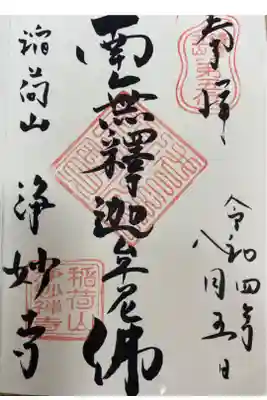 奉拝
令和四年
八月五日
南無釋迦牟尼佛
稲荷山
浄妙寺
稲荷山
浄妙禅寺